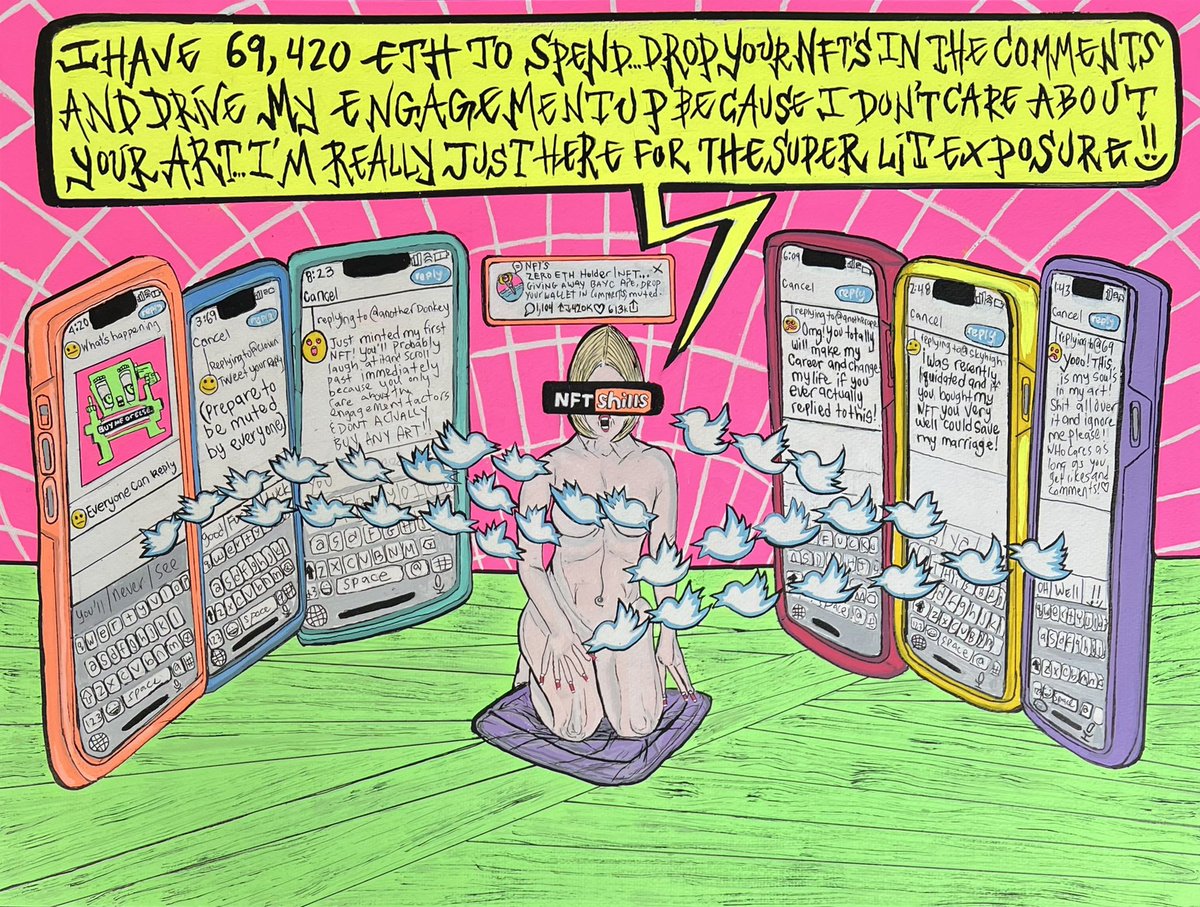 I HAVE 69,420 ETH TO SPEND...DROP YOUR NFT'S IN THE COMMENTS
AND DRIVE MY ENGAGEMENT UP BECAUSE I DON'T CARE ABOUT
YOUR ART...I'M REALLY JUST HERE FOR THE SUPER LIT EXPOSURE!!
4:20
What's happening
reply
BUY ME OR ELSE
Everyone can Reply
You'll never see
space
123
3:69
Cancel
reply
Replying to @clown
Tweet your reply
(Prepare to
be muted
by everyone)
Good
Luck
space
8:23
Cancel
reply
replying to @another Donkey
Just minted my first
NFT! You'll Probably
laugh at it and Scroll
past immediately
because you only
care about the
engagement factors
& DONT ACTUALLY
BUY ANY ART!!
space
NFT'S
ZERO ETH Holder/NFT...
GIVING AWAY BAYC APE, DROP
YOUR WALLET IN COMMENTS, muted.
1,104 420K 613K
NFT Shills
6:09
Cancel
reply
replying to @anotherape
Omg! You totally
will make my
Career and change
my life if you
ever actually
replied to this!
space
2:48
Cancel
reply
replying to @skyhigh
I was recently
liquidated and if
you bought my
NFT you very
well could save
my marriage!
space
1:43
Cancel
reply
replying to @69
Yooo! THIS
is my souls
in my art!
Shit all over
it and ignore
me please!!
Who cares as
long as you
get likes and
comments!
OH Well !!
space